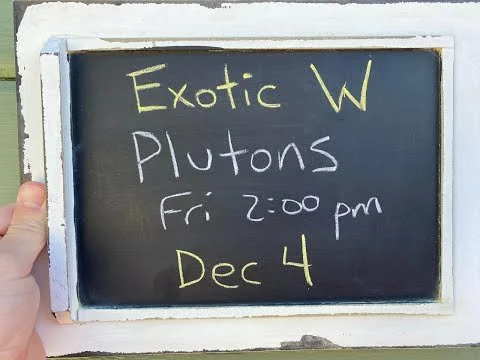 Exotic W
Plutons
Fri 2:00 pm
Dec 4